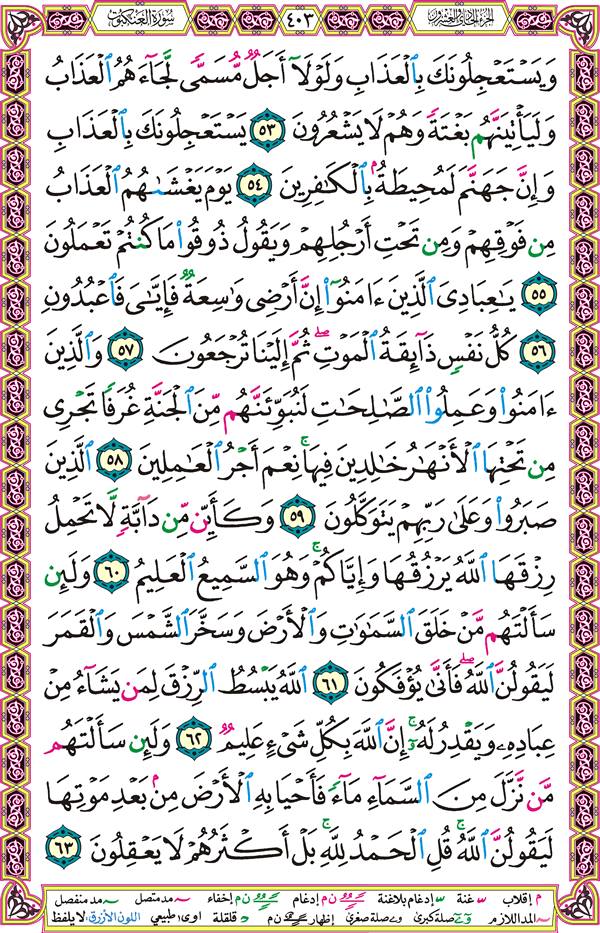 سُورَةُ العَنكَبُوتِ ٤٠٣ الجُزءُ الحَادِي وَالعِشرُونَ
وَيَسْتَعْجِلُونَكَ بِٱلْعَذَابِ وَلَوْلَآ أَجَلٌ مُّسَمًّى لَّجَآءَهُمُ ٱلْعَذَابُ
وَلَيَأْتِيَنَّهُم بَغْتَةً وَهُمْ لَا يَشْعُرُونَ ٥٣ يَسْتَعْجِلُونَكَ بِٱلْعَذَابِ
وَإِنَّ جَهَنَّمَ لَمُحِيطَةٌۢ بِٱلْكَـٰفِرِينَ ٥٤ يَوْمَ يَغْشَىٰهُمُ ٱلْعَذَابُ
مِن فَوْقِهِمْ وَمِن تَحْتِ أَرْجُلِهِمْ وَيَقُولُ ذُوقُوا۟ مَا كُنتُمْ تَعْمَلُونَ
٥٥ يَـٰعِبَادِىَ ٱلَّذِينَ ءَامَنُوٓا۟ إِنَّ أَرْضِى وَٰسِعَةٌ فَإِيَّـٰىَ فَٱعْبُدُونِ
٥٦ كُلُّ نَفْسٍ ذَآئِقَةُ ٱلْمَوْتِ ۖ ثُمَّ إِلَيْنَا تُرْجَعُونَ ٥٧ وَٱلَّذِينَ
ءَامَنُوا۟ وَعَمِلُوا۟ ٱلصَّـٰلِحَـٰتِ لَنُبَوِّئَنَّهُم مِّنَ ٱلْجَنَّةِ غُرَفًا تَجْرِى
مِن تَحْتِهَا ٱلْأَنْهَـٰرُ خَـٰلِدِينَ فِيهَا ۚ نِعْمَ أَجْرُ ٱلْعَـٰمِلِينَ ٥٨ ٱلَّذِينَ
صَبَرُوا۟ وَعَلَىٰ رَبِّهِمْ يَتَوَكَّلُونَ ٥٩ وَكَأَيِّن مِّن دَآبَّةٍ لَّا تَحْمِلُ
رِزْقَهَا ٱللَّهُ يَرْزُقُهَا وَإِيَّاكُمْ ۚ وَهُوَ ٱلسَّمِيعُ ٱلْعَلِيمُ ٦٠ وَلَئِن
سَأَلْتَهُم مَّنْ خَلَقَ ٱلسَّمَـٰوَٰتِ وَٱلْأَرْضَ وَسَخَّرَ ٱلشَّمْسَ وَٱلْقَمَرَ
لَيَقُولُنَّ ٱللَّهُ ۖ فَأَنَّىٰ يُؤْفَكُونَ ٦١ ٱللَّهُ يَبْسُطُ ٱلرِّزْقَ لِمَن يَشَآءُ مِنْ
عِبَادِهِۦ وَيَقْدِرُ لَهُۥٓ ۚ إِنَّ ٱللَّهَ بِكُلِّ شَىْءٍ عَلِيمٌ ٦٢ وَلَئِن سَأَلْتَهُم
مَّن نَّزَّلَ مِنَ ٱلسَّمَآءِ مَآءً فَأَحْيَا بِهِ ٱلْأَرْضَ مِنۢ بَعْدِ مَوْتِهَا
لَيَقُولُنَّ ٱللَّهُ ۚ قُلِ ٱلْحَمْدُ لِلَّهِ ۚ بَلْ أَكْثَرُهُمْ لَا يَعْقِلُونَ ٦٣
م إقلاب غنة إدغام بلاغنة ن م إدغام ن م إخفاء مد متصل مد منفصل
المد اللازم صلة كبرى صلة صغرى إظهار ن م قلقلة اوى: طبيعي اللون الأزرق: لا يلفظ